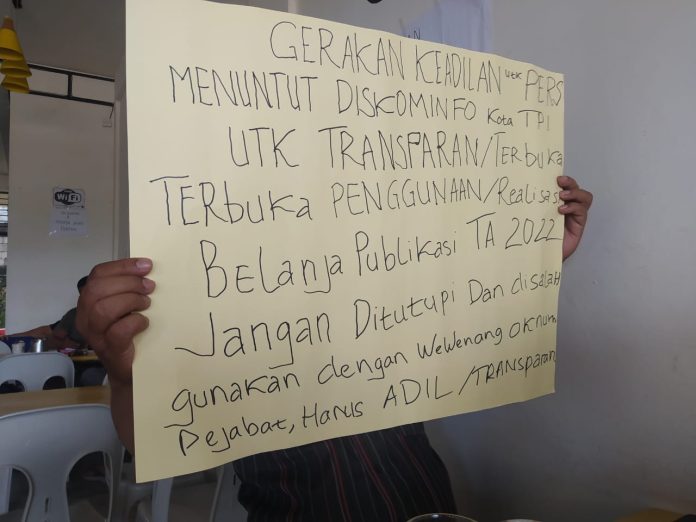 GERAKAN KEADILAN utk PERS
MENUNTUT DISKOMINFO Kota TPI
UTK TRANSPARAN/TERBUKA
TERBUKA PENGGUNAAN/Realisasi
Belanja Publikasi TA 2022
Jangan Ditutupi Dan disalah
gunakan dengan Wewenang oknum
Pejabat, Harus ADIL/TRANSPARAN
WiFi